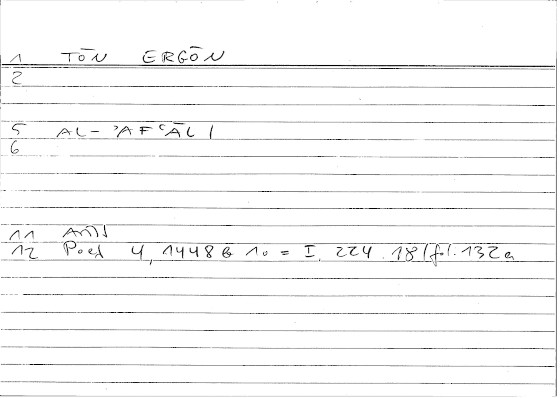 1 TŌN ERGŌN
2
5 AL-ʾAFʿĀLI
6
11 Arist
12 Poet 4, 1448b 10 = I, 224.18/fol. 132a